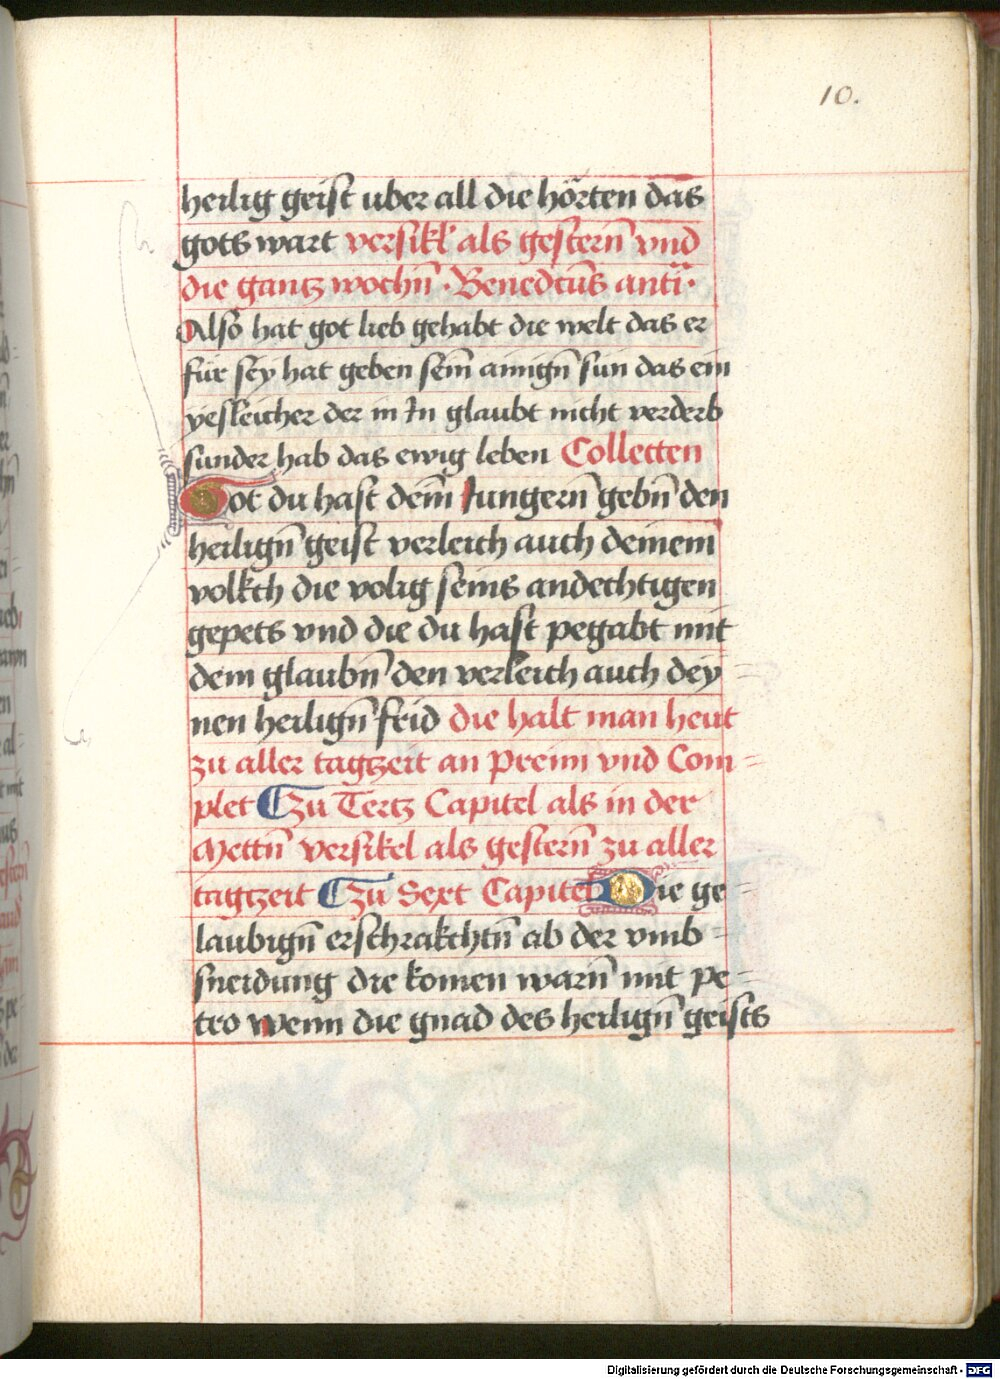 10.
heilig geist uber all die hörten das
gots wart versikl als gestern̄ vnd
die gantz wochn̄ · Benedctūs anti ·
Also hat got lieb gehabt die welt das er
für sey hat geben sein̄ ainign̄ sun das ein
yesleicher der in In glaubt nicht verderb
sunder hab das ewig leben Collecten
Got du hast dein̄ Jungern̄ gebn̄ den
heilign̄ geist verleich auch deinem
volkch die volig seins andechtigen
gepets vnd die du hast pegabt mit
dem glaubn̄ den verleich auch dey=
nen heilign̄ frid die halt man heut
zu aller tagtzeit an Preim vnd Com=
plet Zu Tertz Capitel als in der
Mettn̄ versikel als gestern̄ zu aller
tagtzeit Zu Sext Capitel Die ge=
laubign̄ erschrakchtn̄ ab der vmb=
sneidung die komen warn̄ mit pe=
tro wenn die gnad des heilign̄ geists
Digitalisierung gefördert durch die Deutsche Forschungsgemeinschaft - DFG